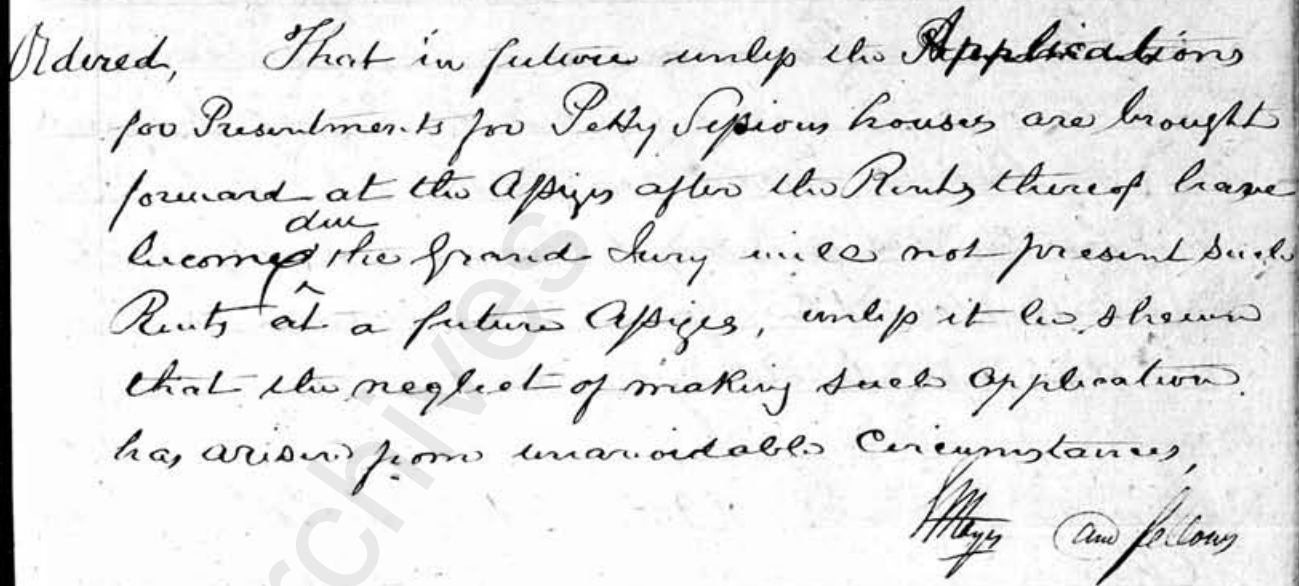 Ordered, That in future unless the Applications
for Presentments for Petty Sessions houses are brought
forward at the Assizes after the Rents thereof have
due
become the Grand Jury will not present such
Rents at a future Assizes, unless it be shewn
that the neglect of making such application
has arisen from unavoidable Circumstances,
and fellows
chives